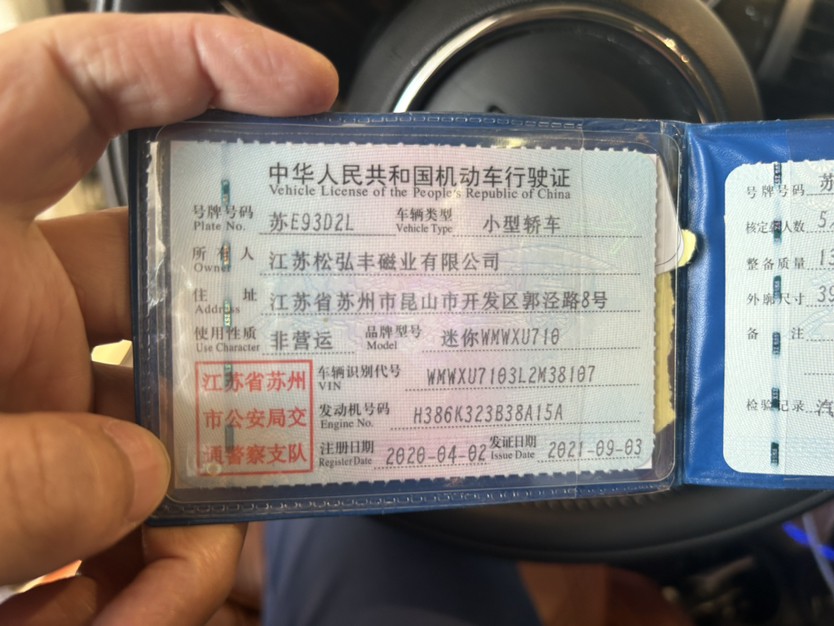 中华人民共和国机动车行驶证
Vehicle License of the People's Republic of China
号牌号码 苏E93D2L 车辆类型 小型轿车
Plate No. Vehicle Type
所有人 江苏松弘丰磁业有限公司
Owner
住址 江苏省苏州市昆山市开发区郭泾路8号
Address
使用性质 非营运 品牌型号 迷你WMWXU710
Use Character Model
江苏省苏州
市公安局交
通警察支队
车辆识别代号 WMWXU7103L2M38107
VIN
发动机号码 H386K323B38A15A
Engine No.
注册日期 2020-04-02 发证日期 2021-09-03
Register Date Issue Date
号牌号码 苏
核定 人数 5
整备质量 13
外廓尺寸 39
备注
检验记录